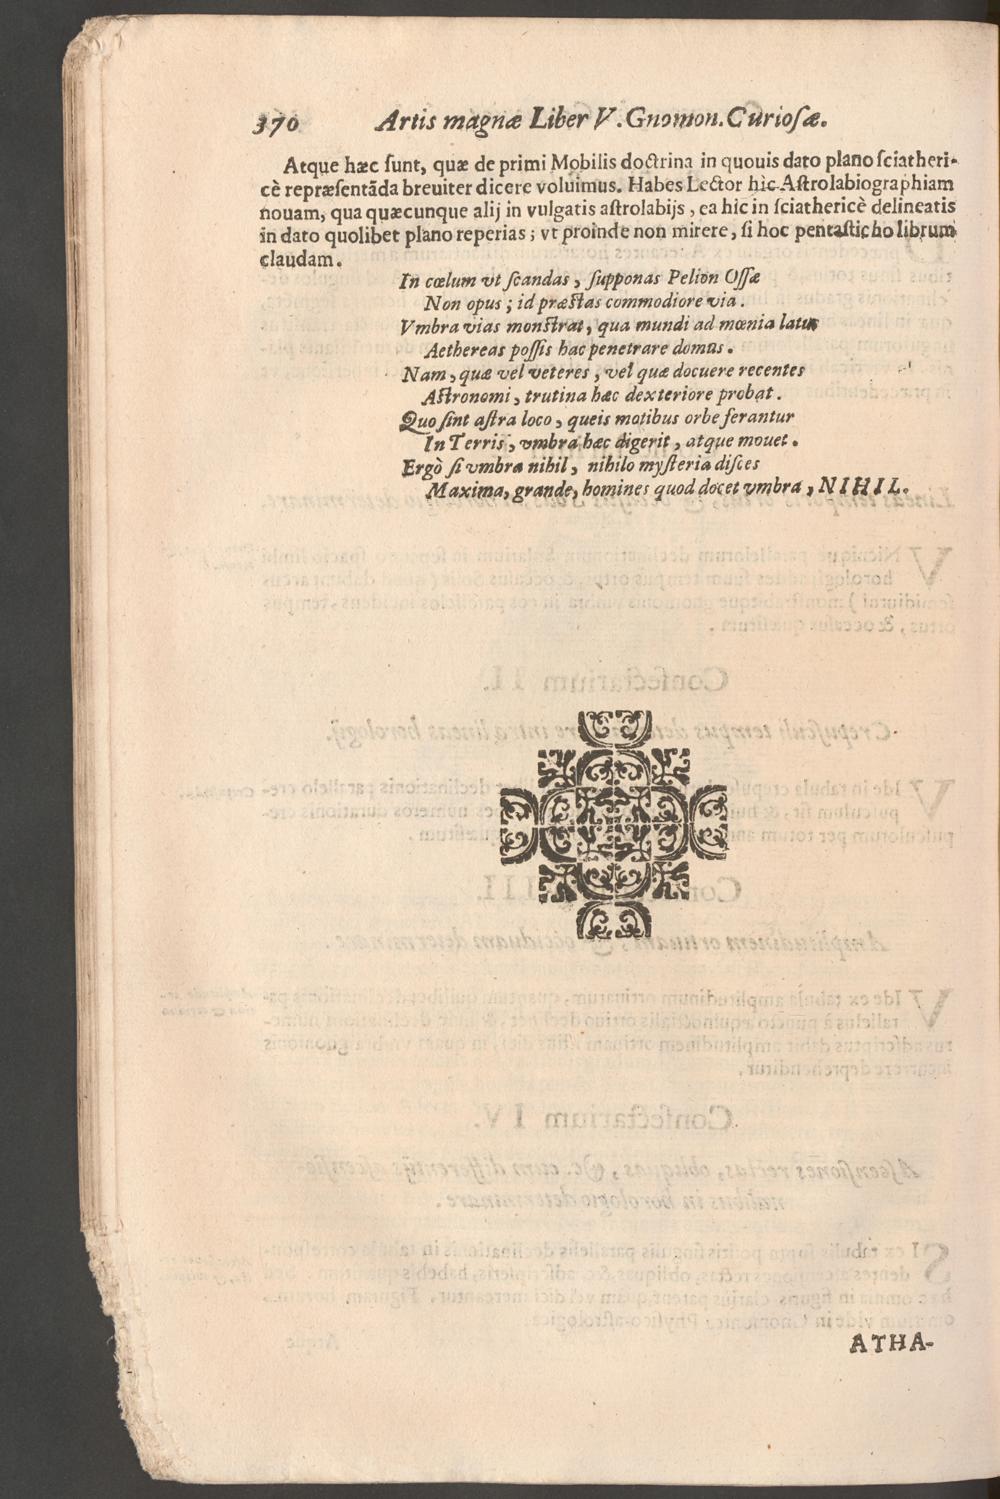 370 Artis magnæ Liber V. Gnomon. Curioſæ.
Atque hæc ſunt, quæ de primi Mobilis doctrina in quouis dato plano ſciatheri-
cè repræſentāda breuiter dicere voluimus. Habes Lector hìc Aſtrolabiographiam
nouam, qua quæcunque alij in vulgatis aſtrolabijs, ea hic in ſciathericè delineatis
in dato quolibet plano reperias; vt proinde non mirere, ſi hoc pentaſticho librum
claudam.
In cœlum vt ſcandas, ſupponas Pelion Oſſæ
Non opus; id præſtas commodiore via.
Vmbra vias monſtrat, qua mundi ad mœnia latus
Aethereas poſſis hac penetrare domus.
Nam, quæ vel veteres, vel quæ docuere recentes
Aſtronomi, trutina hæc dexteriore probat.
Quo ſint aſtra loco, queis motibus orbe ferantur
In Terris, vmbra hæc digerit, atque mouet.
Ergò ſi vmbra nihil, nihilo myſteria diſces
Maxima, grande, homines quod docet vmbra, NIHIL.
ATHA-